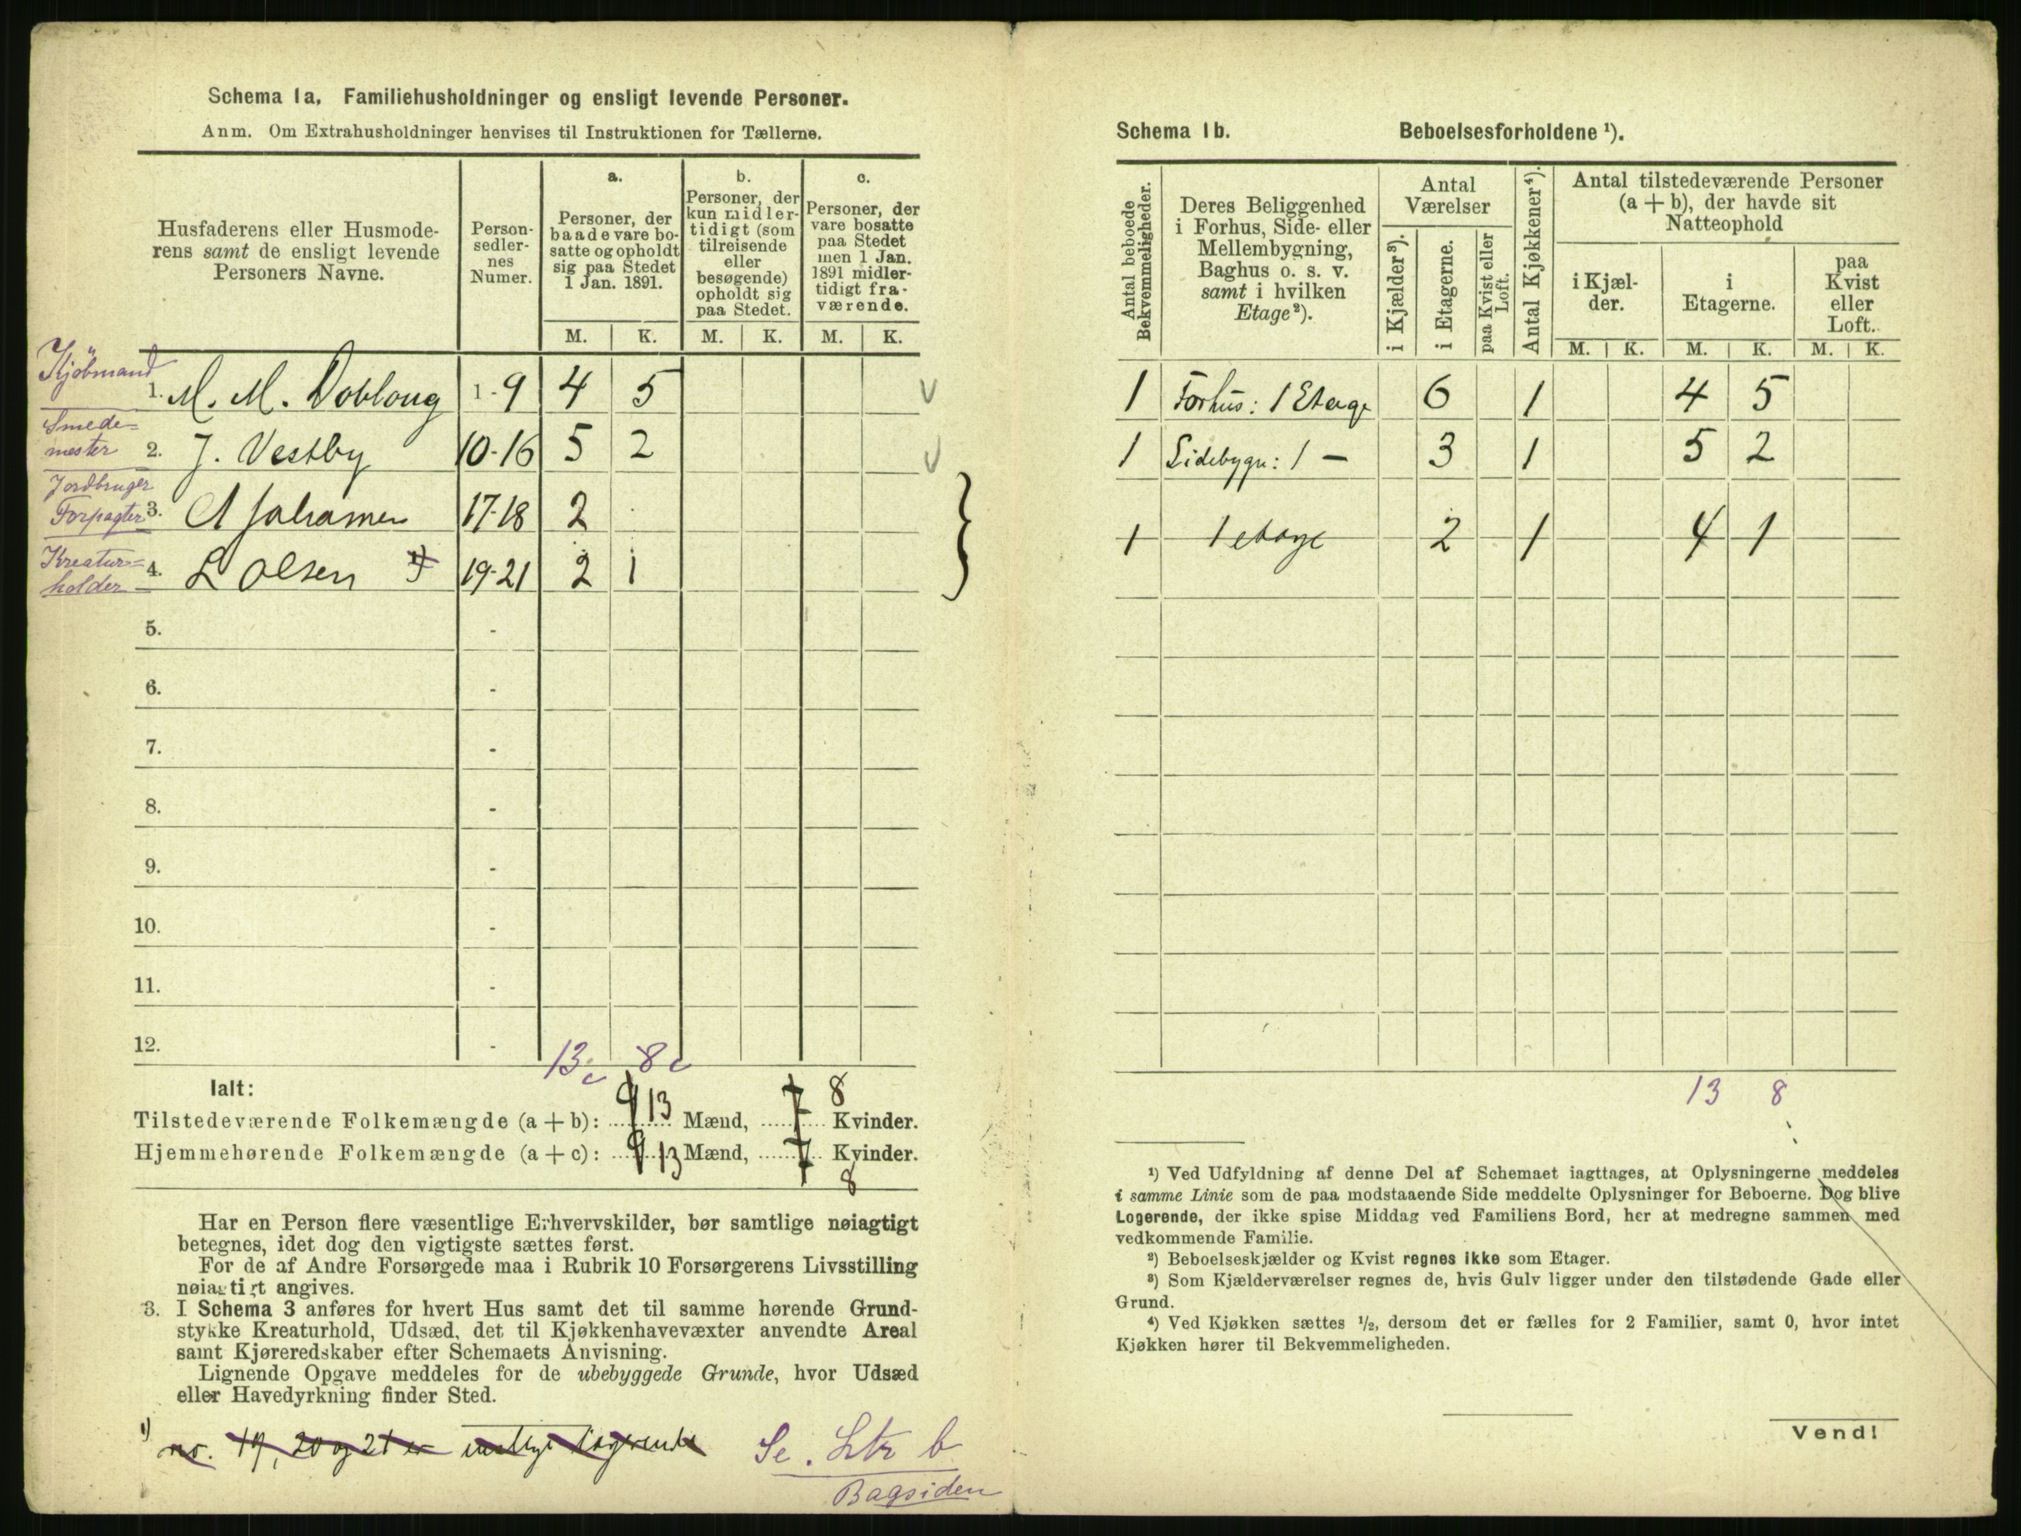 Schema 1a. Familiehusholdninger og ensligt levende Personer.
Anm. Om Extrahusholdninger henvises til Instruktionen for Tællerne.
Husfaderens eller Husmode-
rens samt de ensligt levende
Personers Navne.
Person-
sedler-
nes
Numer.
a.
Personer, der
baade vare bo-
satte og opholdt
sig paa Stedet
1 Jan. 1891.
b.
Personer, der
kun midler-
tidigt (som
tilreisende
eller
besøgende)
opholdt sig
paa Stedet.
c.
Personer, der
vare bosatte
paa Stedet
men 1 Jan.
1891 midler-
tidigt fra-
værende.
M. K. M. K. M. K.
Kjøbmand
1. M. M. Dobloug 1-9 4 5
Smede-
mester 2. J. Vestby 10-16 5 2
Jordbruger
Forpagter 3. A Johansen 17-18 2
Kreatur-
holder 4. L Olsen 19-21 2 1
5. -
6. -
7. -
8. -
9. -
10. -
11. -
12. -
13 8
Ialt:
Tilstedeværende Folkemængde (a + b): 9 13 Mænd, 7 8 Kvinder.
Hjemmehørende Folkemængde (a + c): 9 13 Mænd, 7 8 Kvinder.
Har en Person flere væsentlige Erhvervskilder, bør samtlige nøiagtigt
betegnes, idet dog den vigtigste sættes først.
For de af Andre Forsørgede maa i Rubrik 10 Forsørgerens Livsstilling
nøiagtigt angives.
3. I Schema 3 anføres for hvert Hus samt det til samme hørende Grund-
stykke Kreaturhold, Udsæd, det til Kjøkkenhavevæxter anvendte Areal
samt Kjøreredskaber efter Schemaets Anvisning.
Lignende Opgave meddeles for de ubebyggede Grunde, hvor Udsæd
eller Havedyrkning finder Sted.
1) no. 19, 20 og 21 er enslige logerende
Se. Ltr b
Bagsiden
Schema 1b. Beboelsesforholdene ¹).
Antal beboede
Bekvemmeligheder.
Deres Beliggenhed
i Forhus, Side- eller
Mellembygning,
Baghus o. s. v.
samt i hvilken
Etage²).
Antal
Værelser
i Kjælder³).
i Etagerne.
paa Kvist eller
Loft.
Antal Kjøkkener⁴).
Antal tilstedeværende Personer
(a + b), der havde sit
Natteophold
i Kjæl-
der.
i
Etagerne.
paa
Kvist
eller
Loft.
M. K. M. K. M. K.
1 Forhus: 1 Etage 6 1 4 5
1 Sidebygn: 1 — 3 1 5 2
1 1 etage 2 1 4 1
13 8
¹) Ved Udfyldning af denne Del af Schemaet iagttages, at Oplysningerne meddeles
i samme Linie som de paa modstaaende Side meddelte Oplysninger for Beboerne. Dog blive
Logerende, der ikke spise Middag ved Familiens Bord, her at medregne sammen med
vedkommende Familie.
²) Beboelseskjælder og Kvist regnes ikke som Etager.
³) Som Kjælderværelser regnes de, hvis Gulv ligger under den tilstødende Gade eller
Grund.
⁴) Ved Kjøkken sættes ½, dersom det er fælles for 2 Familier, samt 0, hvor intet
Kjøkken hører til Bekvemmeligheden.
Vend!